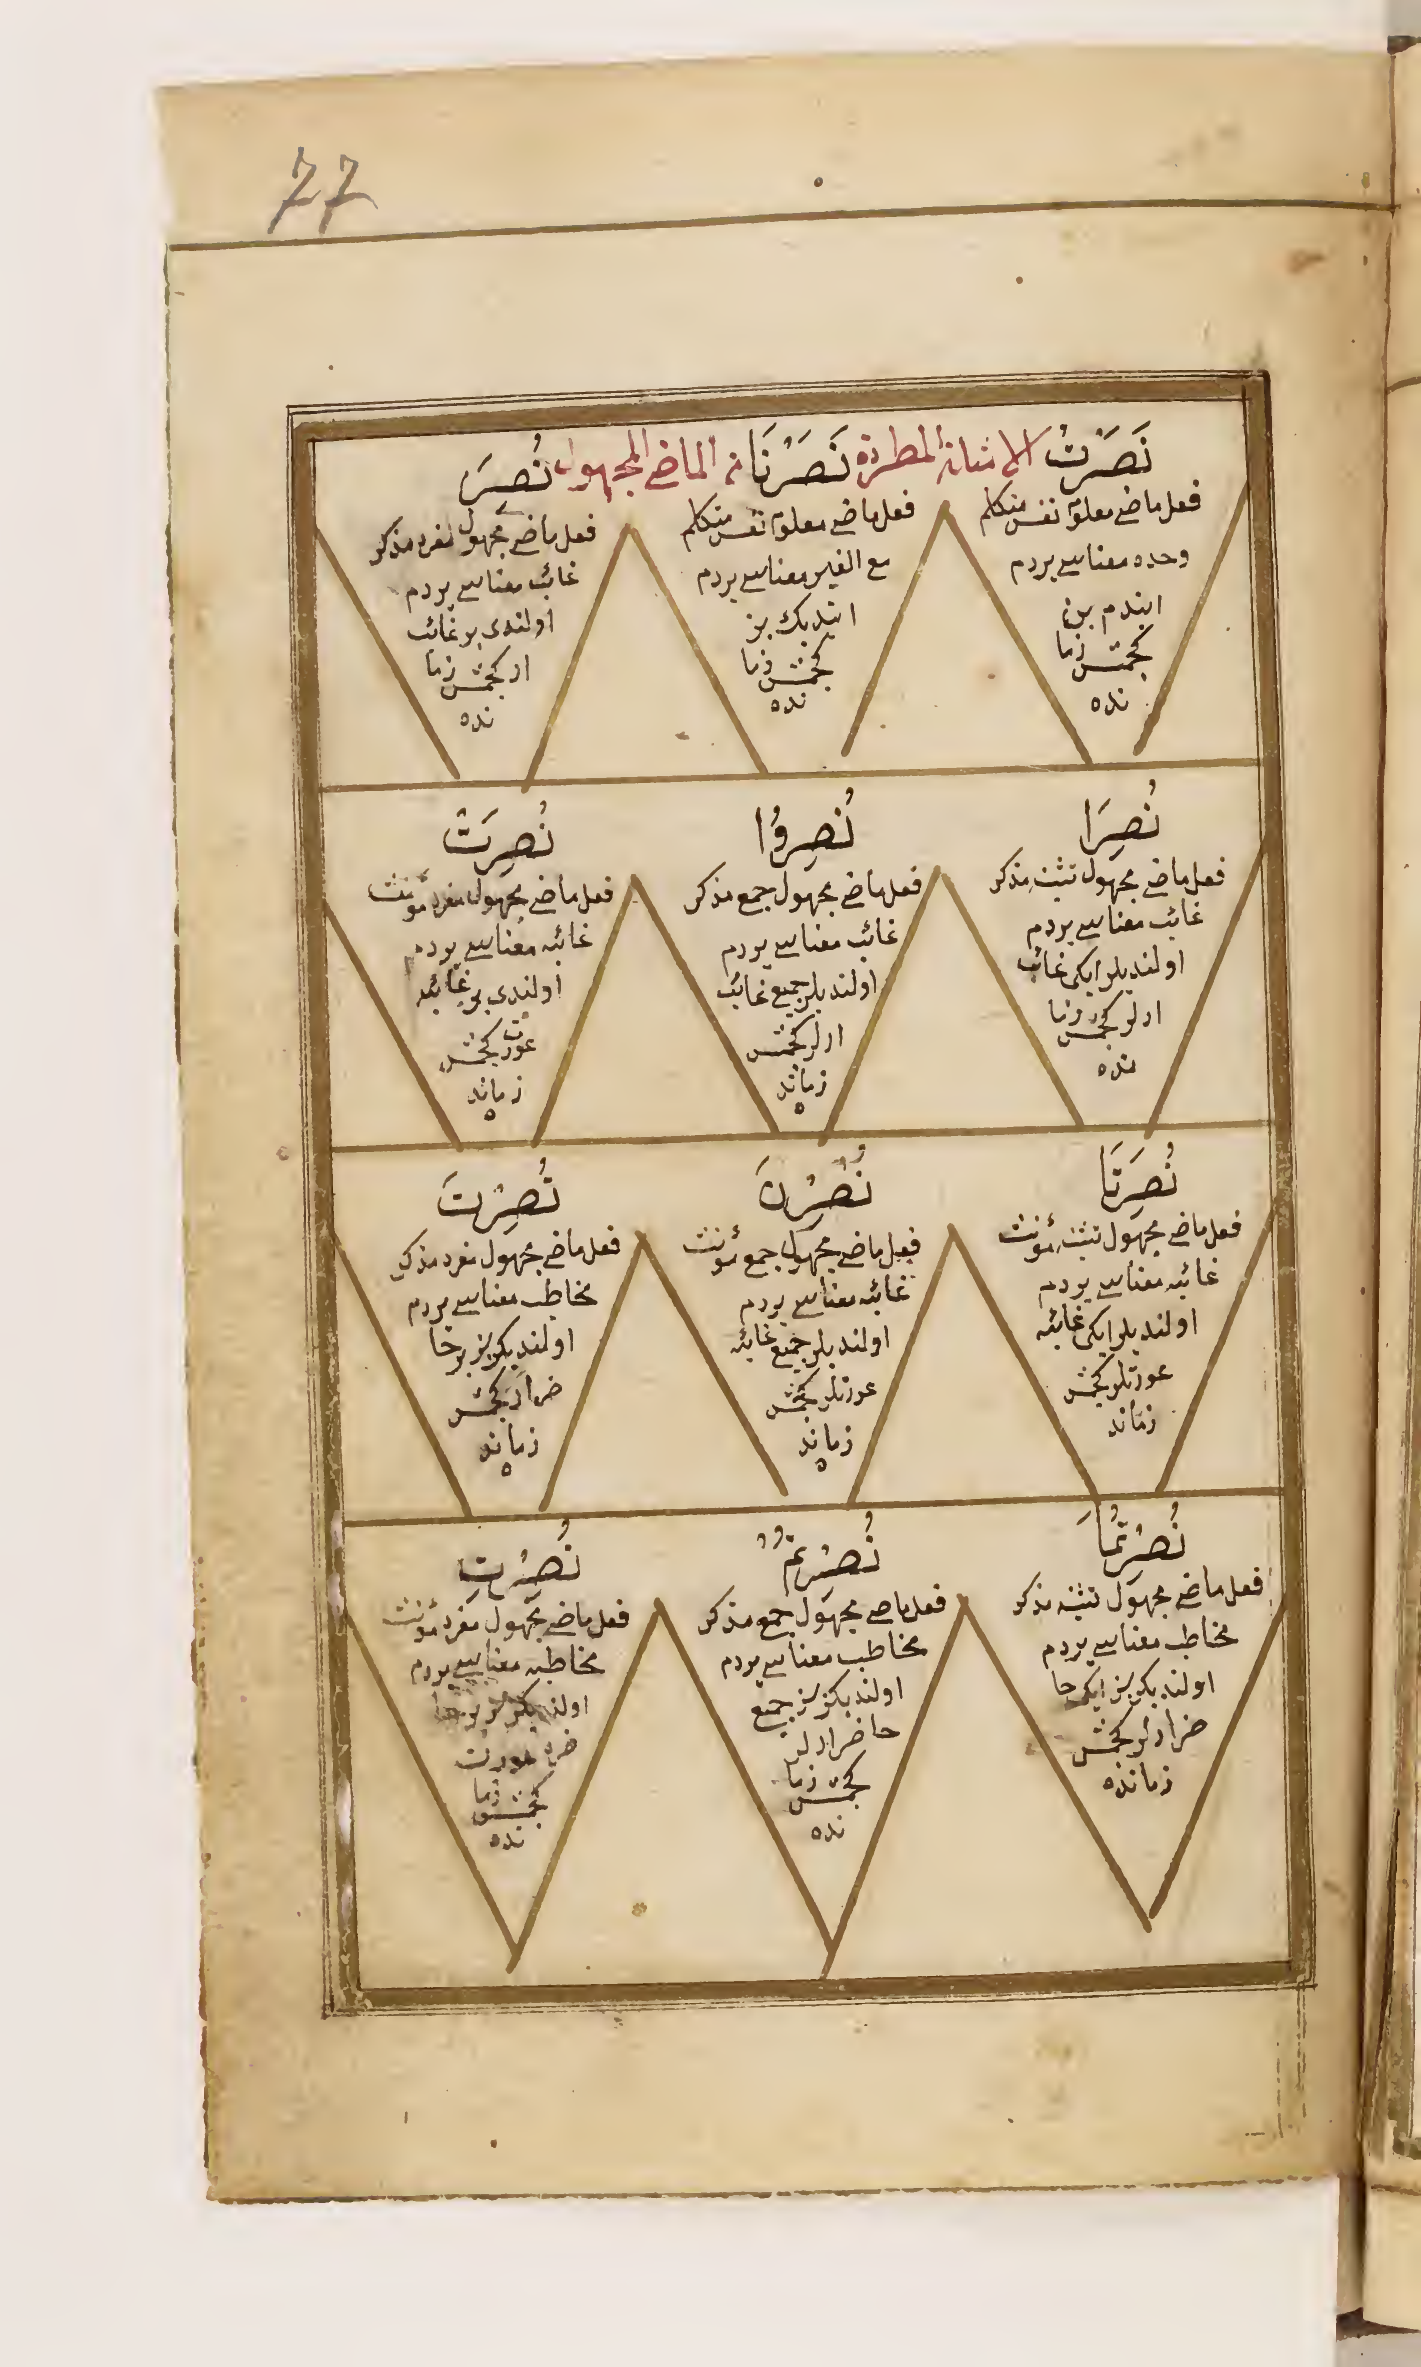 77
نَصَرْتُ الامثلة المطردة نَصَرْنَا من الماضى المجهول نُصِرَ
فعل ماضى معلوم نفس متكلم
وحده معناسى يردم
ايتدم بن
كچمش زما
نده
فعل ماضى معلوم نفس متكلم
مع الغير معناسى يردم
ايتدیك بز
كچمش زما
نده
فعل ماضى مجهول مفرد مذكر
غائب معناسى يردم
اولندى بر غائب
ار كچمش زما
نده
نُصِرَا
فعل ماضى مجهول تثنيه مذكر
غائب معناسى يردم
اولنديلر ايكى غائب
ارلر كچمش زما
نده
نُصِرُوا
فعل ماضى مجهول جمع مذكر
غائب معناسى يردم
اولنديلر جميع غائب
ارلر كچمش
زماند
ه
نُصِرَتْ
فعل ماضى مجهول مفرد مؤنث
غائبه معناسى يردم
اولندى بر غائبه
عورت كچمش
زماند
ه
نُصِرَتَا
فعل ماضى مجهول تثنيه مؤنث
غائبه معناسى يردم
اولنديلر ايكى غائبه
عورتلر كچمش
زماند
نُصِرْنَ
فعل ماضى مجهول جمع مؤنث
غائبه معناسى يردم
اولنديلر جميع غائبه
عورتلر كچمش
زماند
ه
نُصِرْتَ
فعل ماضى مجهول مفرد مذكر
مخاطب معناسى يردم
اولنديكز بر حا
ضر ار كچمش
زماند
ه
نُصِرْتُمَا
فعل ماضى مجهول تثنيه مذكر
مخاطب معناسى يردم
اولنديكز سز ايكى حا
ضر ارلر كچمش
زمانده
نُصِرْتُمْ
فعل ماضى مجهول جمع مذكر
مخاطب معناسى يردم
اولنديكز سز جميع
حاضر ارلر
كچمش زما
نده
نُصِرْتِ
فعل ماضى مجهول مفرد مؤنث
مخاطبه معناسى يردم
بر حا
ضره عورت
كچمش زما
نده